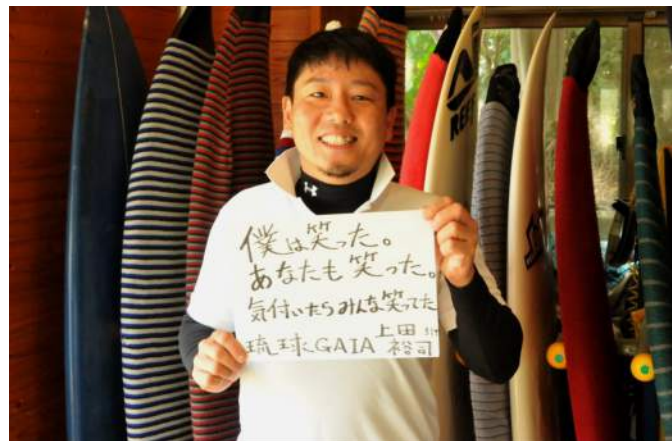 僕は笑った。
あなたも笑った。
気付いたらみんな笑ってた
琉球GAIA 上田裕司
REEF